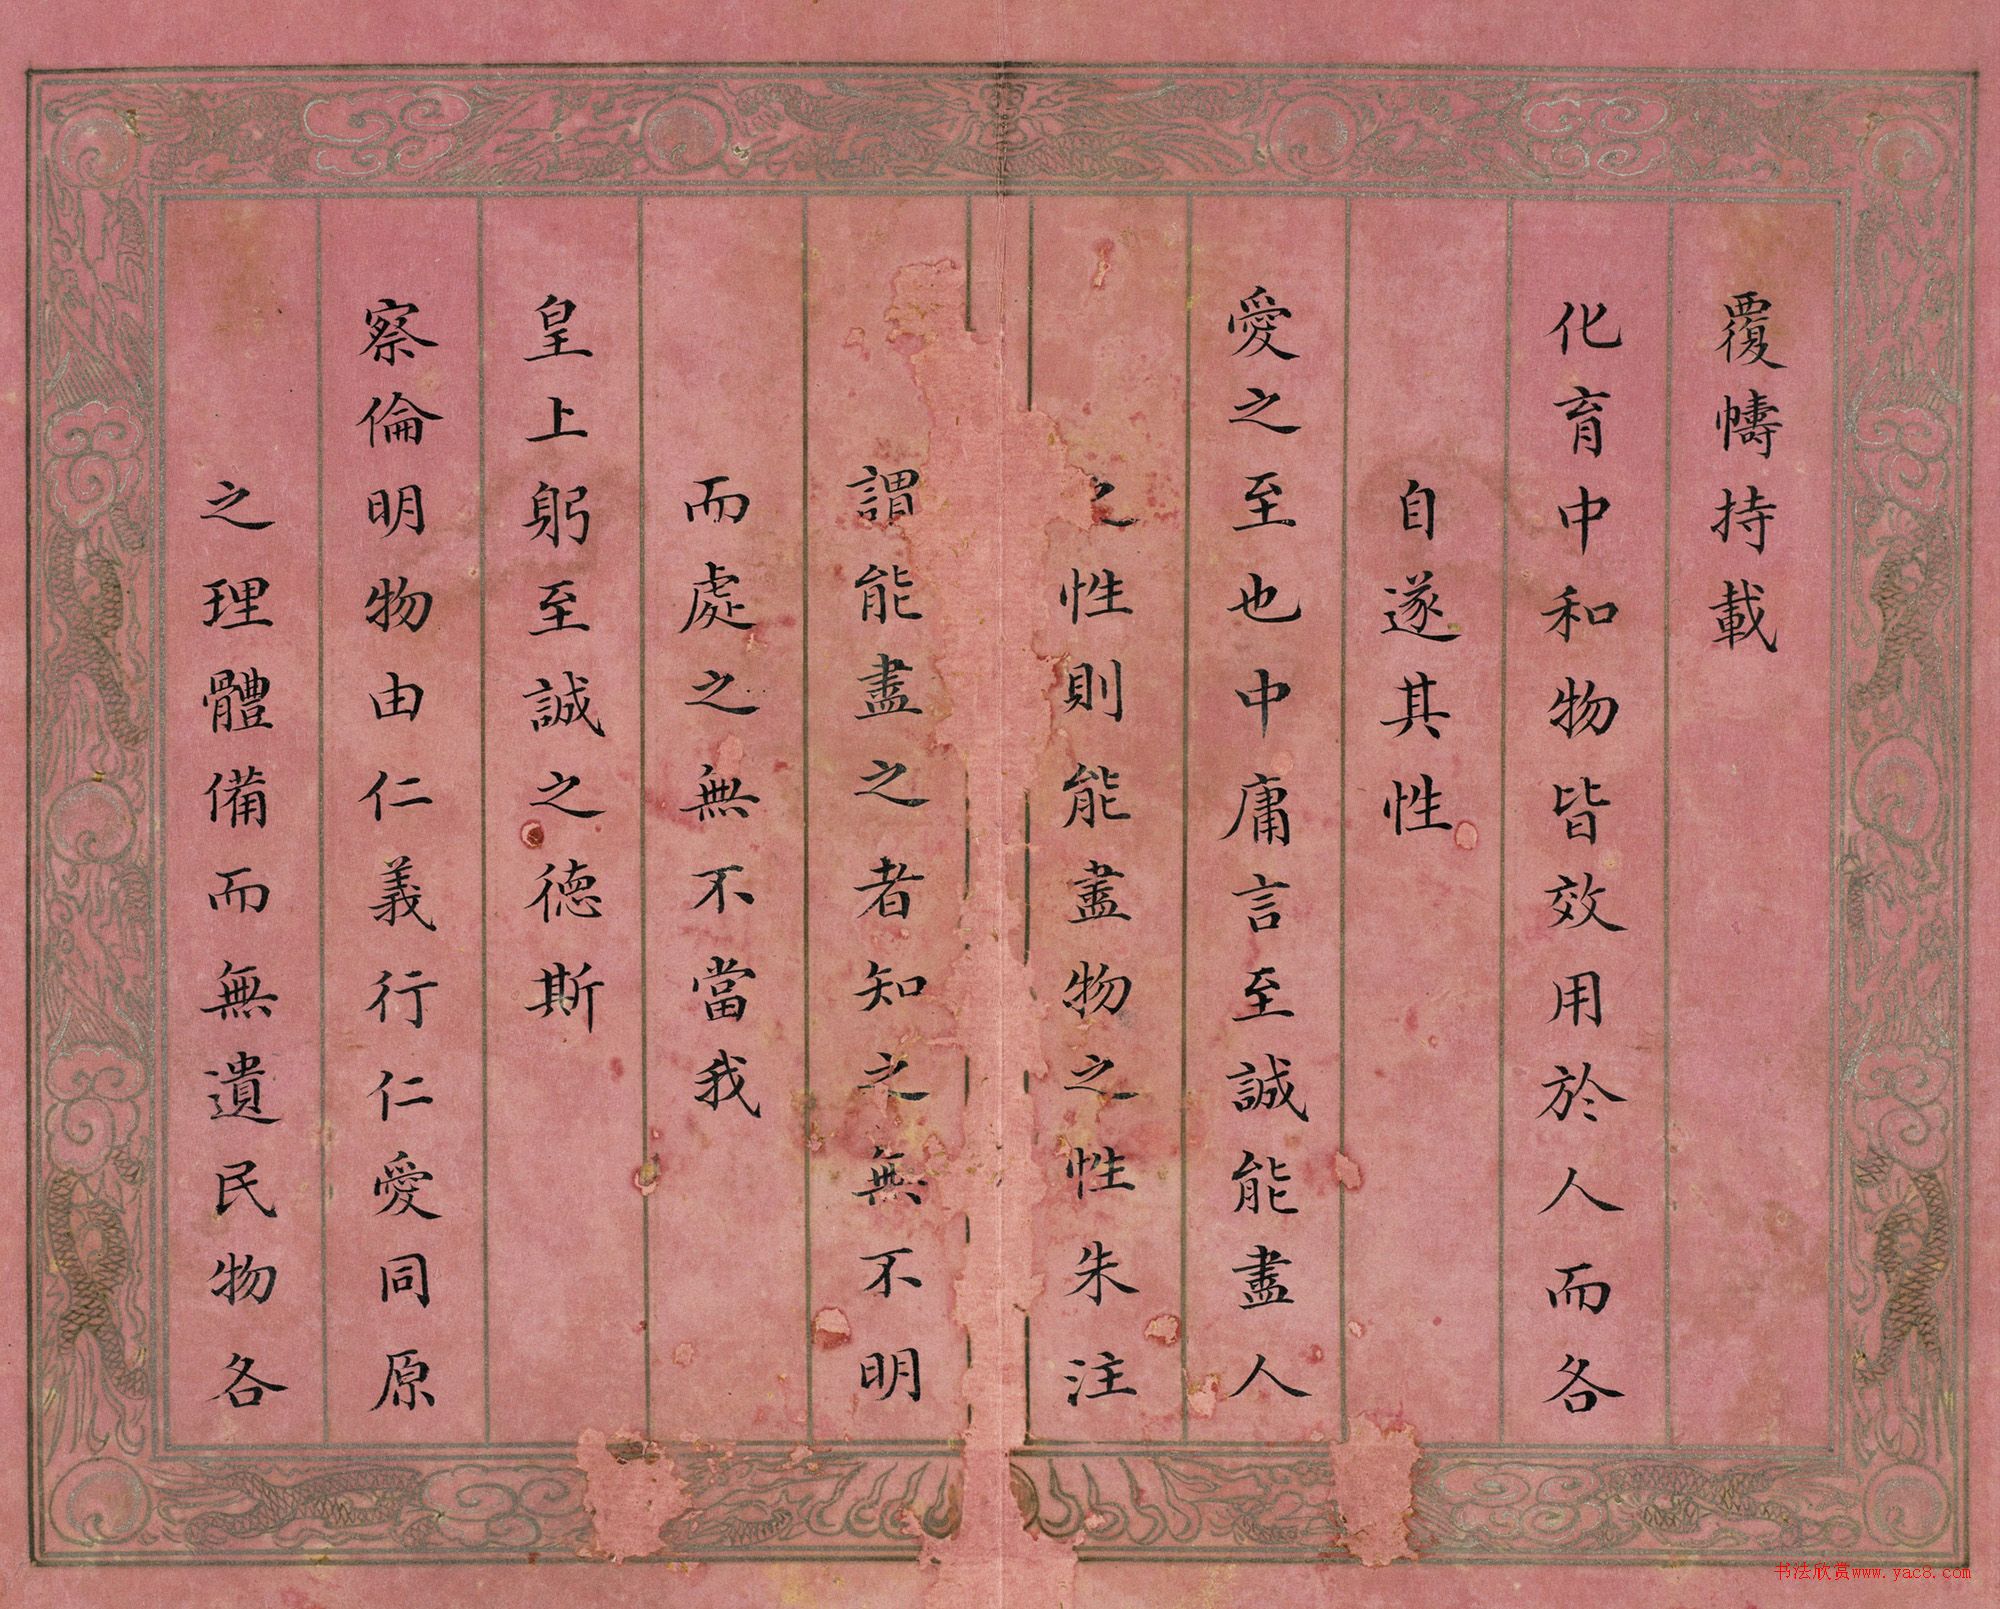 覆幬持載
化育中和物皆效用於人而各
自遂其性
愛之至也中庸言至誠能盡人
之性則能盡物之性朱注
謂能盡之者知之無不明
而處之無不當我
皇上躬至誠之德斯
察倫明物由仁義行仁愛同原
之理體備而無遺民物各
书法欣赏www.yac8.com